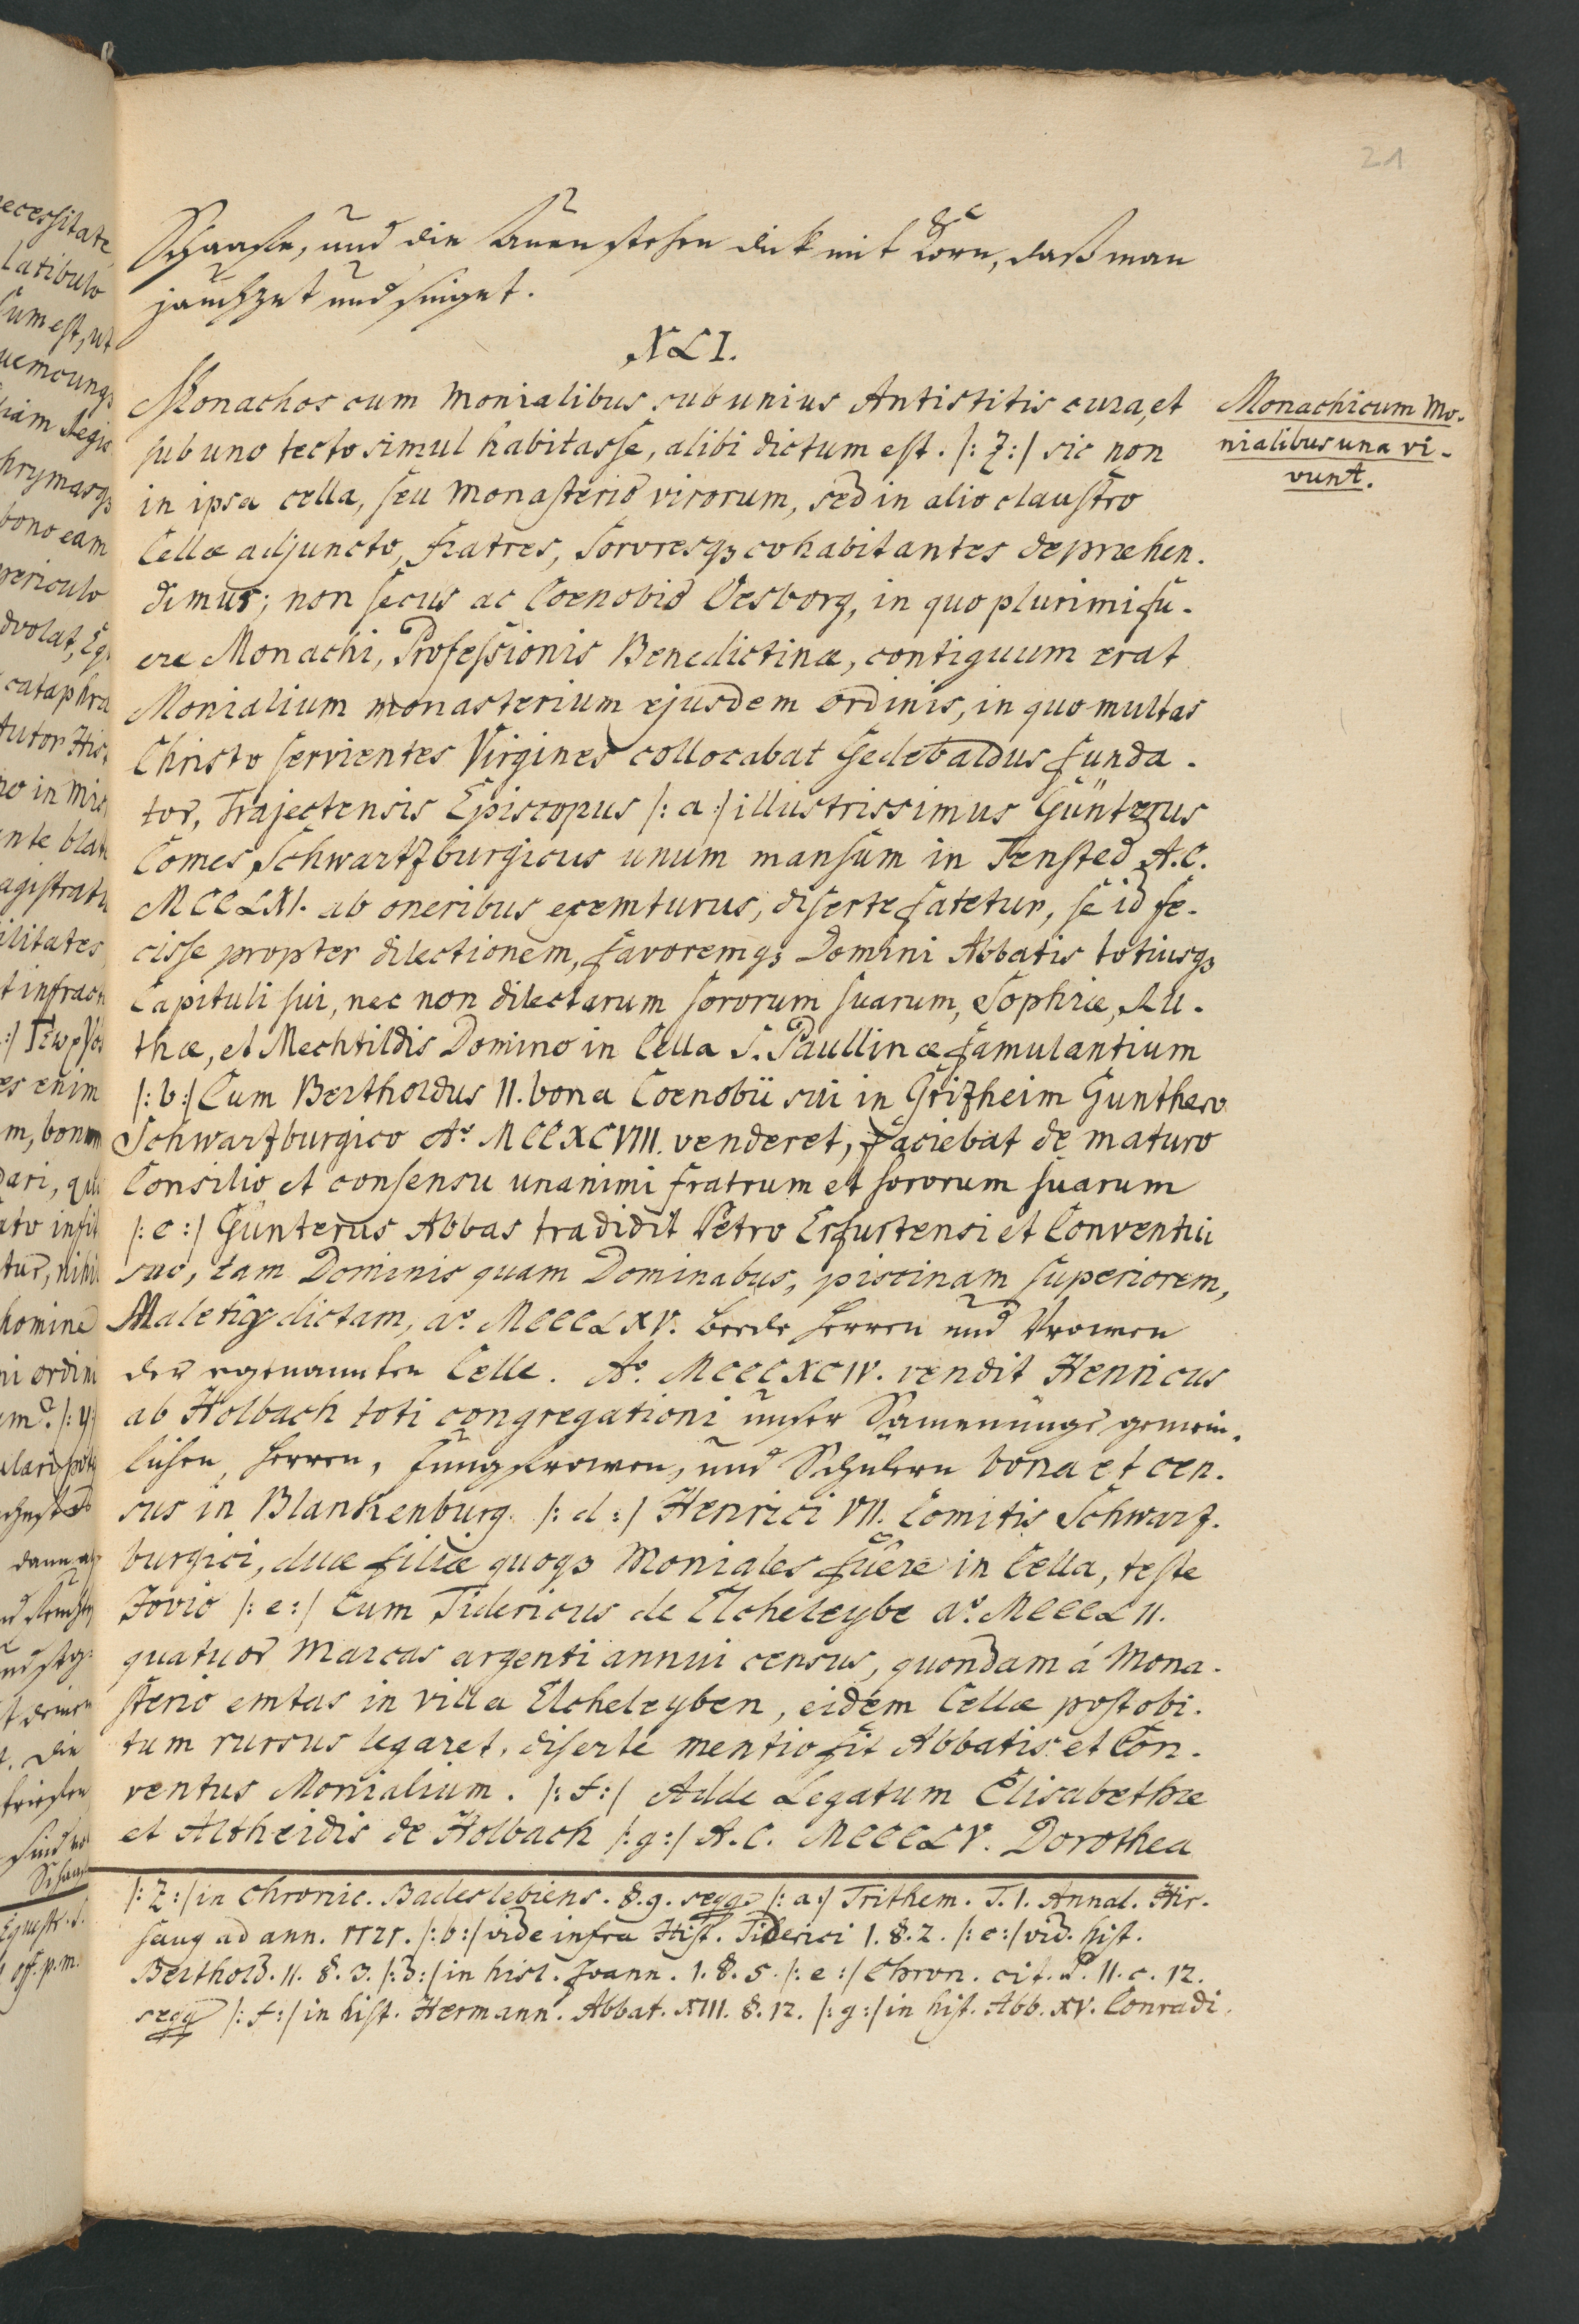 21
Schaafen, und die Auen stehen dick mit Korn, daß man
jauchzet und singet.
XLI.
Monachos cum Monialibus sub unius Antistitis cura, et
sub uno tecto simul habitasse, alibi dictum est. |: z :| sic non
in ipsa cella, seu Monasterio virorum, sed in alio claustro
Cellæ adjuncto, fratres, Sororesqꝫ cohabitantes depræhen-
dimus; non secus ac Coenobio Oesborg, in quo plurimi fu-
ere Monachi, Professionis Benedictinæ, contiguum erat
Monialium monasterium ejusdem ordinis, in quo multas
Christo servientes Virgines collocabat Gedebaldus funda-
tor, Trajectensis Episcopus |: a :| illustrissimus Günterus
Comes Schwartzburgicus unum mansum in Tensted A. C.
MCCLXI. ab oneribus exemturus, diserte fatetur, se id fe-
cisse propter dilectionem, favoremqꝫ Domini Abbatis totiusqꝫ
Capituli sui, nec non dilectarum sororum suarum, Sophiæ, Ju-
thæ, et Mechtildis Domino in Cella S. Paullinæ famulantium
|: b :| Cum Bertholdus II. bona Coenobii sui in Grizheim Gunthero
Schwarzburgico Aᵒ MCCXCVIII. venderet, faciebat de maturo
Consilio et consensu unanimi fratrum et sororum suarum
|: c :| Günterus Abbas tradidit Petro Erfurtensi et Conventui
suo, tam Dominis quam Dominabus, piscinam superiorem,
Maletig dictam, aᵒ. MCCCLXV. beede Herren und Vrowen
der egenannten Celle. Aᵒ. MCCCXCIV. vendit Henricus
ab Holbach toti congregationi unser Samenunge gemein-
lichen, Herren, Jungfrowen, und Schülern bona et cen-
sus in Blankenburg. |: d :| Henrici VII. Comitis Schwarz-
burgici, duæ filiæ quoqꝫ Moniales fuêre in Cella, teste
Jovio |: e :| Cum Tidericus de Elcheleybe aᵒ. MCCCLII.
quatuor Marcas argenti annui census, quondam á Mona-
sterio emtas in villa Elcheleyben, eidem Cellæ post obi-
tum rursus legaret, diserte mentio fit Abbatis et Con-
ventus Monialium. |: f :| Adde Legatum Elisabethæ
et Altheidis de Holbach |: g :| A. C. MCCCLV. Dorothea
Monachi cum Mo-
nialibus una vi-
vunt.
|: z :| in Chronic. Badeslebiens. §. 9. seqq |: a :| Trithem. T. I. Annal. Hir-
saug ad ann. 1121. |: b :| vide infra Hist. Tiderici I. §. 2. |: c :| vid. hist.
Berthold. II. §. 3. |: d :| in hist. Joann. I. §. 5. |: e :| Chron. cit. P. II. c. 12.
seqq |: f :| in hist. Hermann. Abbat. XIII. §. 12. |: g :| in hist. Abb. XV. Conradi.